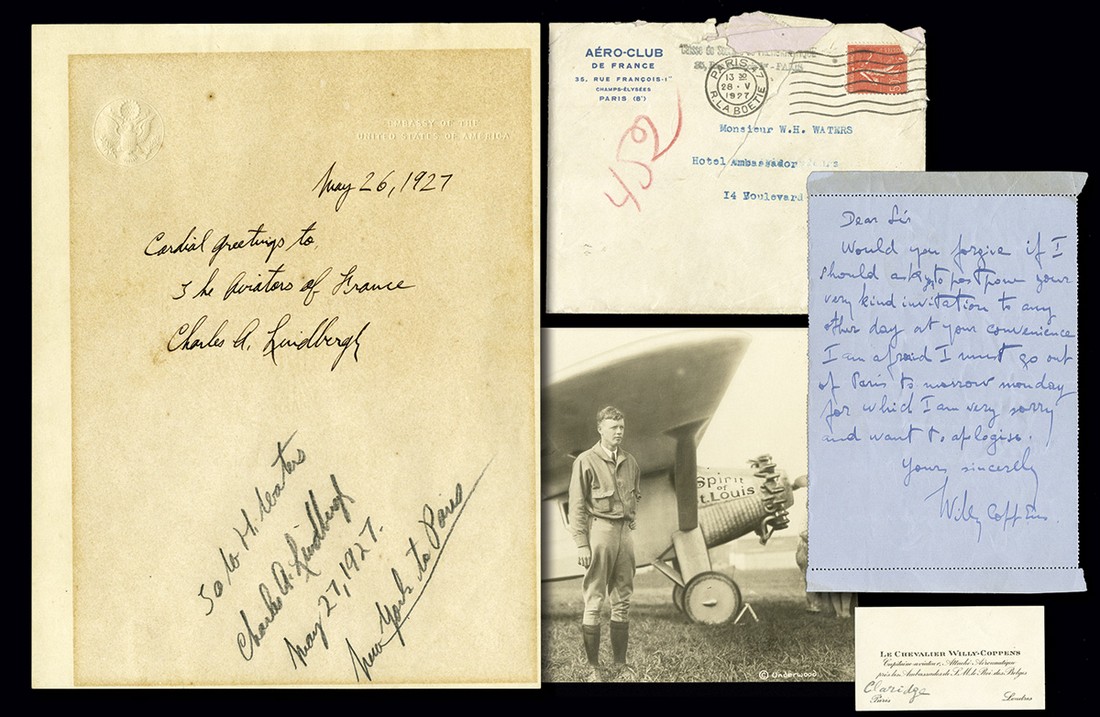 EMBASSY OF THE
UNITED STATES OF AMERICA
May 26, 1927
Cordial greetings to
The Aviators of France
Charles A. Lindbergh
To W. H. Waters
Charles A. Lindbergh
May 27, 1927.
New York to Paris
AÉRO-CLUB
DE FRANCE
35, RUE FRANÇOIS-1er
CHAMPS-ÉLYSÉES
PARIS (8e)
PARIS
PARIS 47
13 30
28 · V
1927
R. LA BOETIE
452
Monsieur W.H. WATERS
Hotel Ambassador
14 Boulevard
Dear Sir
Would you forgive if I
should ask to postpone your
very kind invitation to any
other day at your convenience
I am afraid I must go out
of Paris to morrow monday
for which I am very sorry
and want to apologise.
Yours sincerely
Willy Coppens
Spirit
of
St. Louis
© UNDERWOOD
LE CHEVALIER WILLY-COPPENS
Capitaine-aviateur, Attaché Aéronautique
près les Ambassades de S.M. le Roi des Belges
Claridge
Paris Londres